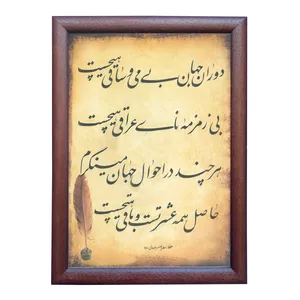 دوران جهان بی می و ساقی هیچست
بی زمزمه نای عراقی هیچست
هر چند در احوال جهان مینگرم
حاصل همه عشرتست و باقی هیچست